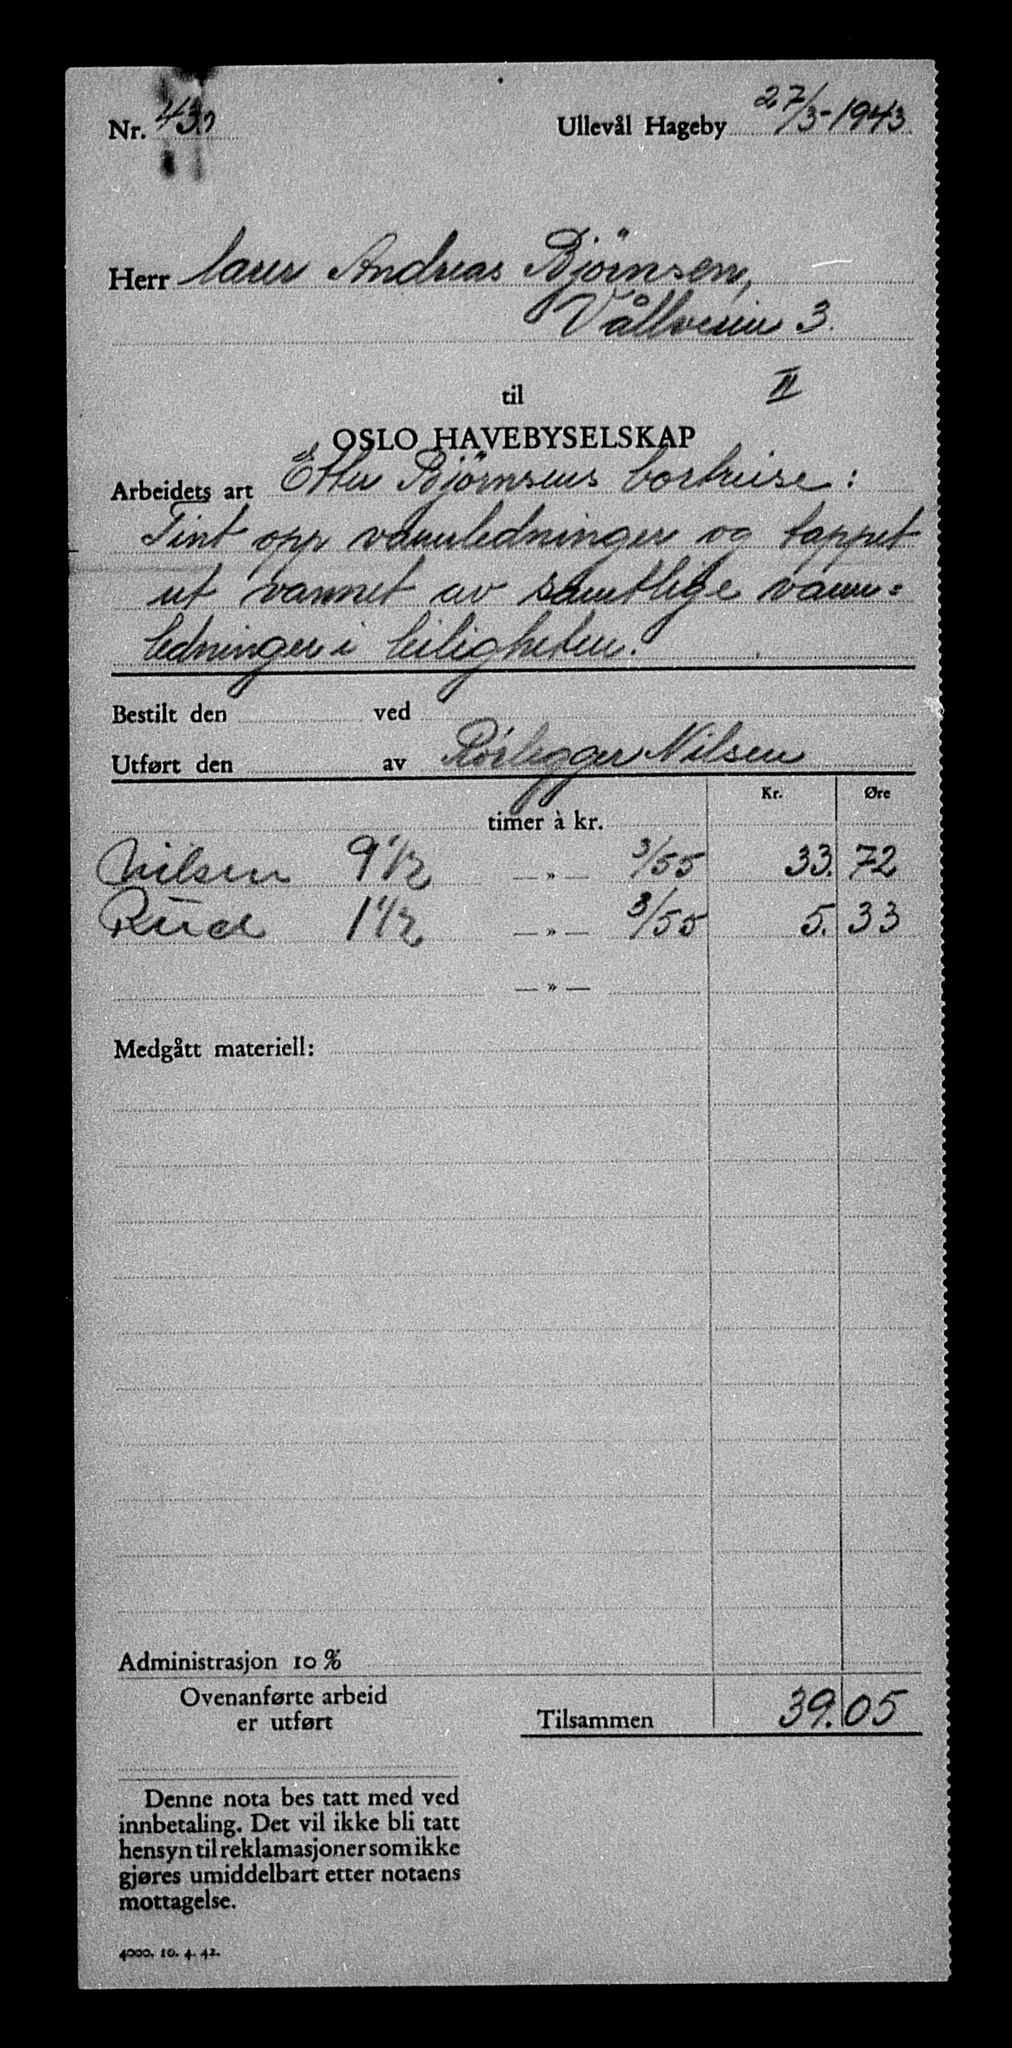 Nr. 430
Ullevål Hageby 27/3-1943
Herr Andreas Bjørnsen,
Vållveien 3.
II
til
OSLO HAVEBYSELSKAP
Arbeidets art Etter Bjørnsens bortreise:
Tint opp vannledninger og tappet
ut vannet av samtlige vann=
ledninger i leiligheten.
Bestilt den ved
Utført den av Rørlegger Nilsen
Kr. Øre
timer à kr.
Nilsen 9 1/2 — „ — 3/55 33. 72
Rud 1 1/2 — „ — 3/55 5. 33
— „ —
Medgått materiell:
Administrasjon 10 %
Ovenanførte arbeid
er utført
Tilsammen 39.05
Denne nota bes tatt med ved
innbetaling. Det vil ikke bli tatt
hensyn til reklamasjoner som ikke
gjøres umiddelbart etter notaens
mottagelse.
4000. 10. 4. 42.